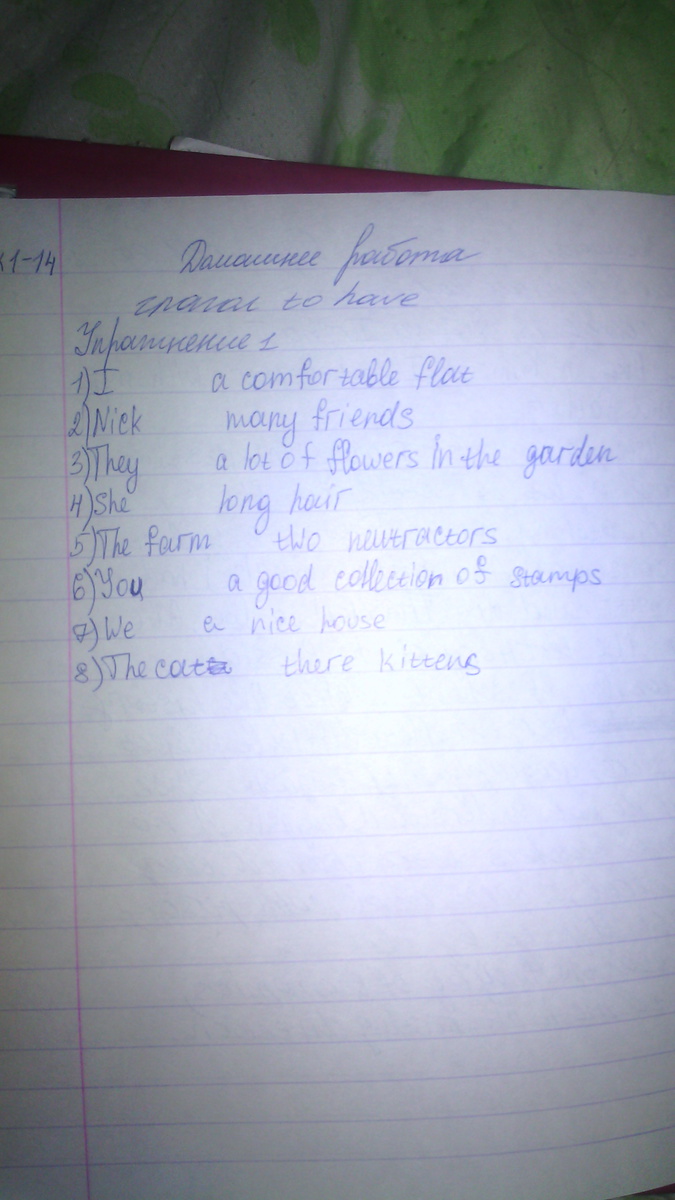 Домашнее работа
глагол to have
Упражнение 1
1) I a comfortable flat
2) Nick many friends
3) They a lot of flowers in the garden
4) She long hair
5) The farm two neutractors
6) You a good collection of stamps
7) We a nice house
8) The cat there kittens